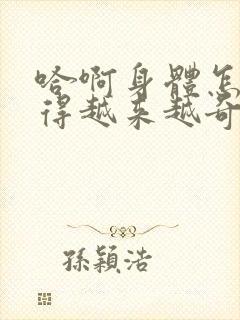 哈啊身體怎
得越来越奇
孫穎浩